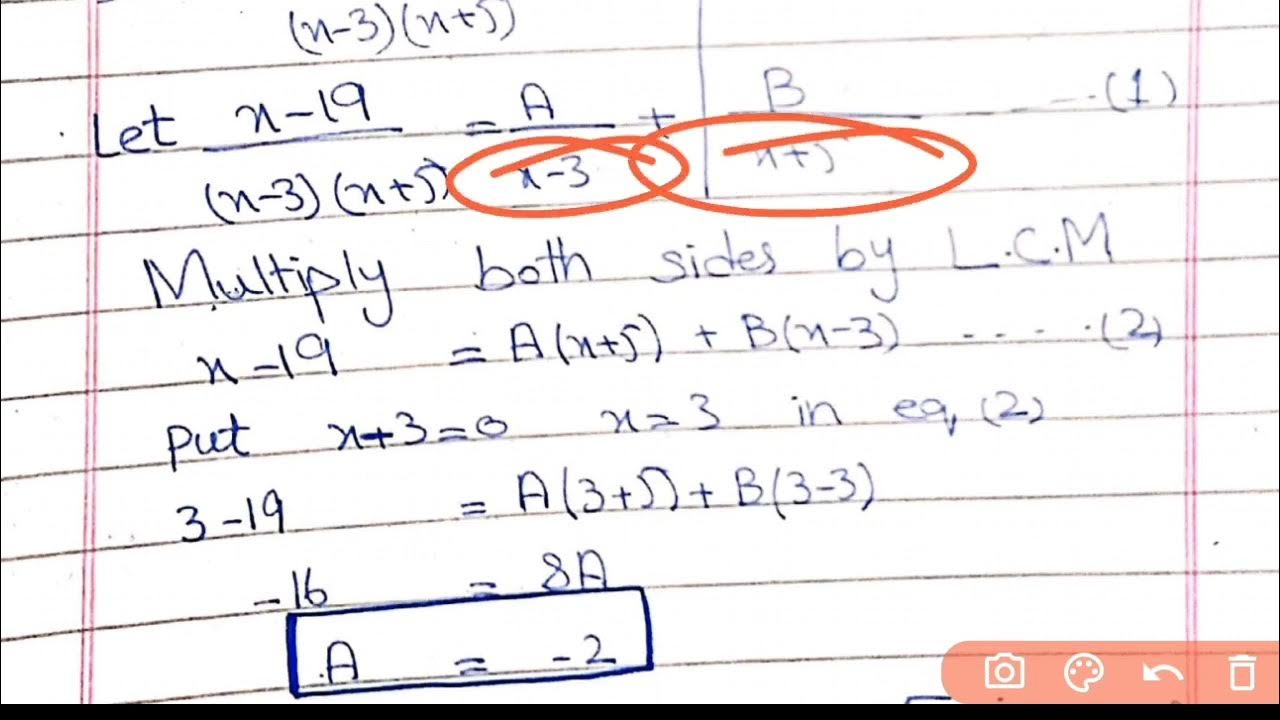 (x-3)(x+5)
Let x-19 = A + B ---- (1)
(x-3)(x+5) x-3 x+5
Multiply both sides by L.C.M
x-19 = A(x+5) + B(x-3) ---- (2)
Put x+3=0 x=3 in eq (2)
3-19 = A(3+5) + B(3-3)
-16 = 8A
A = -2